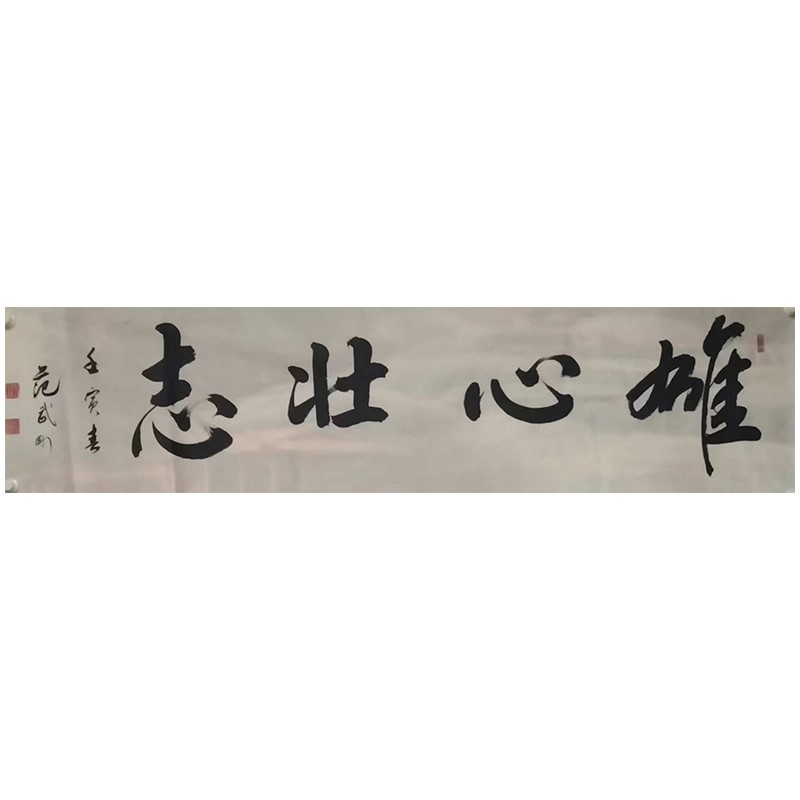 雄心壮志
壬寅春
范武刚